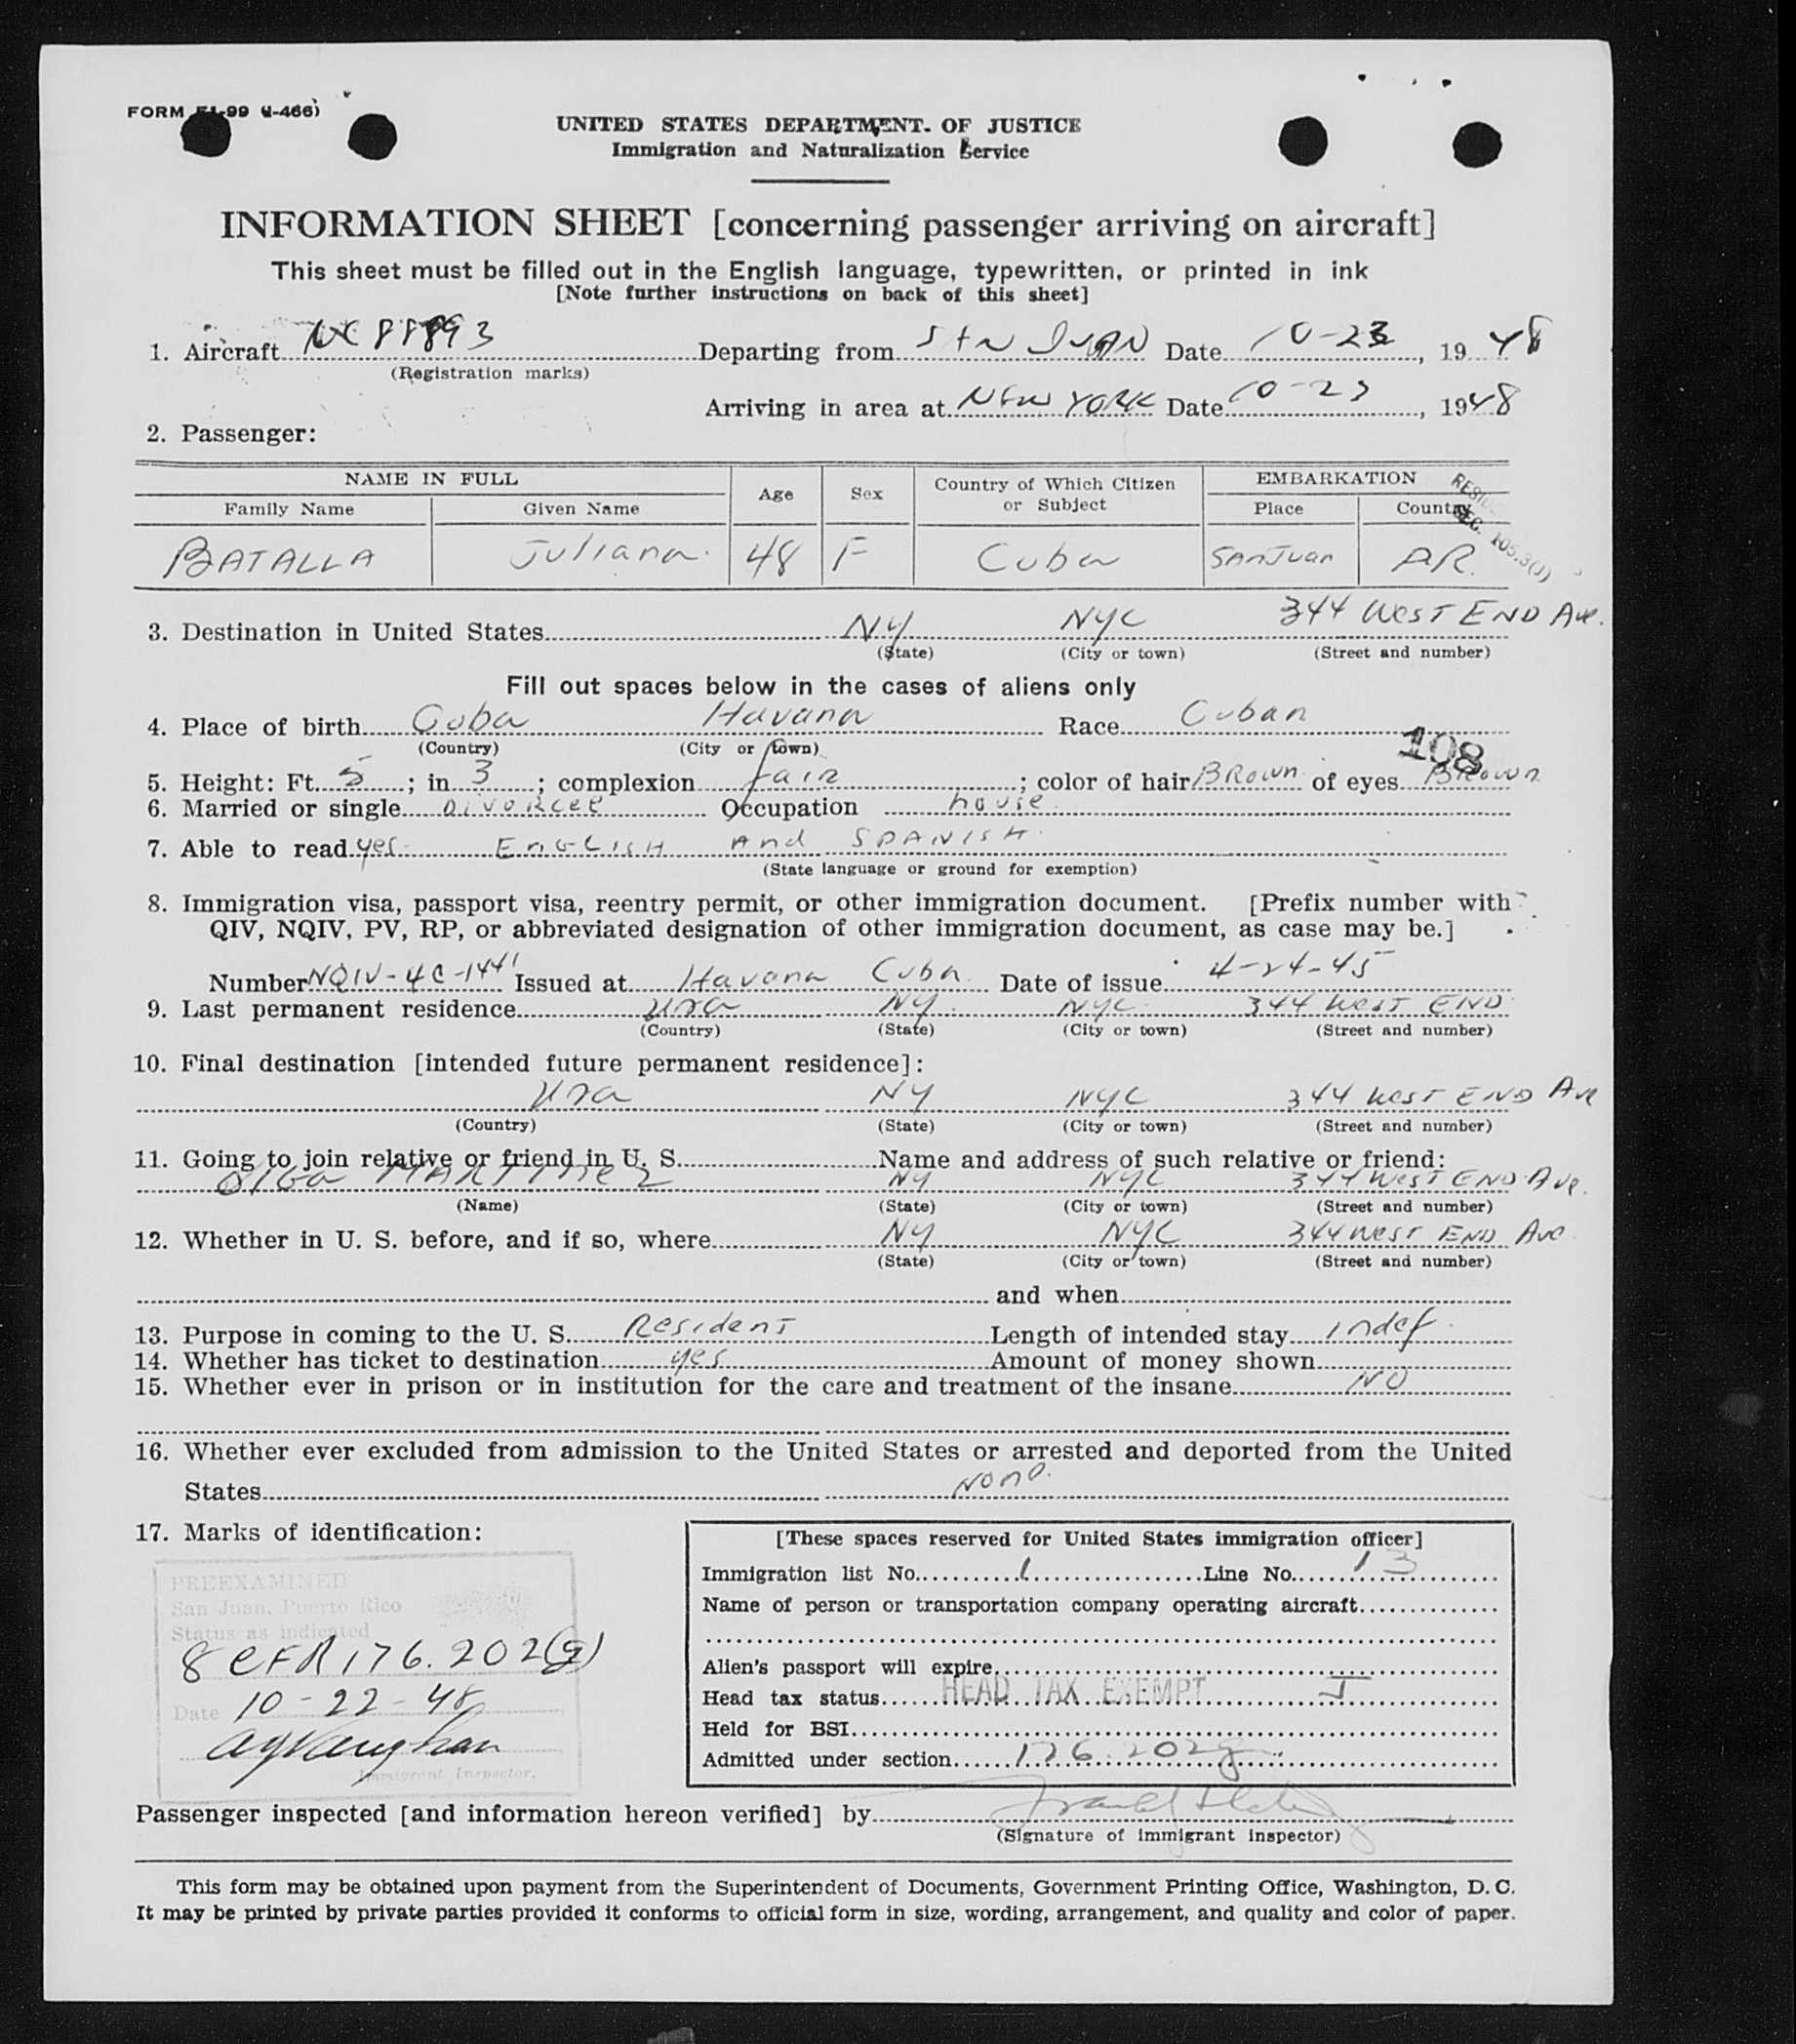 FORM (I-466)
UNITED STATES DEPARTMENT. OF JUSTICE
Immigration and Naturalization Service
INFORMATION SHEET [concerning passenger arriving on aircraft]
This sheet must be filled out in the English language, typewritten, or printed in ink
[Note further instructions on back of this sheet]
1. Aircraft NC 88893 Departing from SAN JUAN Date 10-23, 1948
(Registration marks)
Arriving in area at NEW YORK Date 10-23, 1948
2. Passenger:
NAME IN FULL Age Sex Country of Which Citizen or Subject EMBARKATION
Family Name Given Name Place Country
BATALLA Juliana. 48 F Cuba SAN JUAN PR.
SEC. 105.3(J)
3. Destination in United States NY NYC 344 WEST END Ave.
(State) (City or town) (Street and number)
Fill out spaces below in the cases of aliens only
4. Place of birth Cuba Havana Race Cuban
(Country) (City or town)
108
5. Height: Ft. 5; in 3; complexion fair; color of hair BROWN of eyes BROWN
6. Married or single DIVORCEE Occupation house
7. Able to read yes ENGLISH And SPANISH
(State language or ground for exemption)
8. Immigration visa, passport visa, reentry permit, or other immigration document. [Prefix number with
QIV, NQIV, PV, RP, or abbreviated designation of other immigration document, as case may be.]
Number NQIV-4C-1441 Issued at Havana Cuba Date of issue 4-24-45
9. Last permanent residence Usa NY NYC 344 WEST END
(Country) (State) (City or town) (Street and number)
10. Final destination [intended future permanent residence]:
Usa NY NYC 344 WEST END Ave
(Country) (State) (City or town) (Street and number)
11. Going to join relative or friend in U. S. Name and address of such relative or friend:
Olga MARTINEZ NY NYC 344 West END Ave.
(Name) (State) (City or town) (Street and number)
12. Whether in U. S. before, and if so, where NY NYC 344 WEST END Ave
(State) (City or town) (Street and number)
and when
13. Purpose in coming to the U. S. Resident Length of intended stay indef.
14. Whether has ticket to destination yes Amount of money shown
15. Whether ever in prison or in institution for the care and treatment of the insane NO
16. Whether ever excluded from admission to the United States or arrested and deported from the United
States
17. Marks of identification:
PREEXAMINED
San Juan, Puerto Rico
Status as indicated
8 CFR 176.202(g)
Date 10-22-48
Immigrant Inspector.
[These spaces reserved for United States immigration officer]
Immigration list No. 1 Line No. 13
Name of person or transportation company operating aircraft
Alien's passport will expire
Head tax status HEAD TAX EXEMPT
Held for BSI
Admitted under section 176.202g
Passenger inspected [and information hereon verified] by
(Signature of immigrant inspector)
This form may be obtained upon payment from the Superintendent of Documents, Government Printing Office, Washington, D. C.
It may be printed by private parties provided it conforms to official form in size, wording, arrangement, and quality and color of paper.